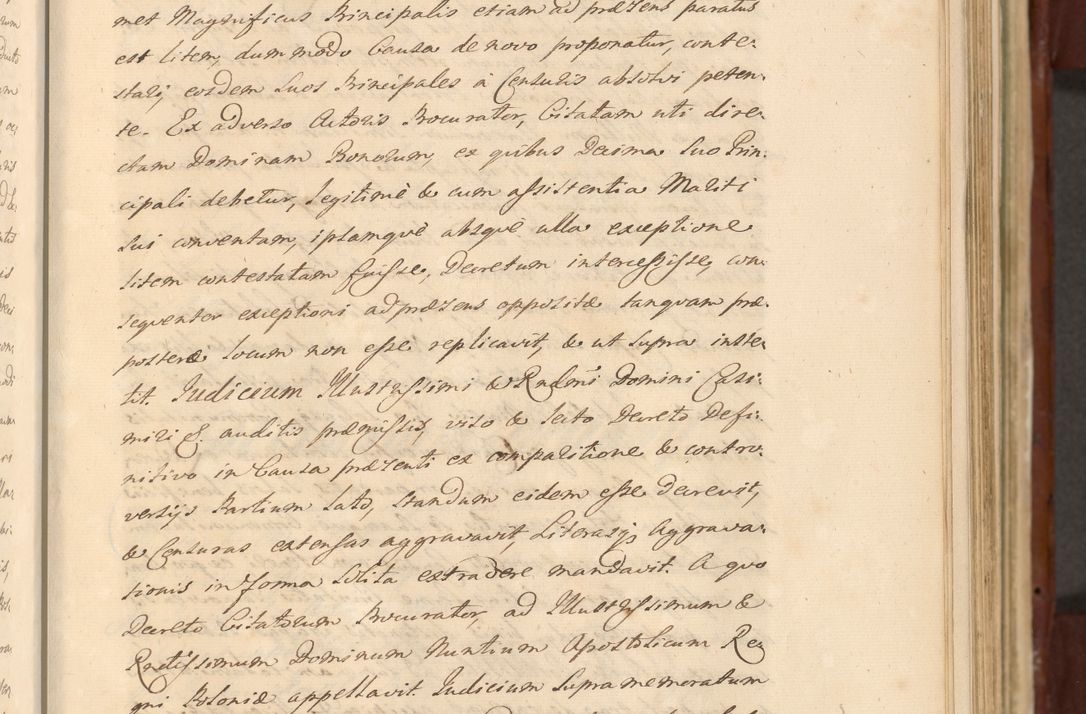 met Magnificus Principalis etiam ad præsens paratus
est litem, dummodo Causa de novo proponatur, conte-
stari, eosdem Suos Principales à Censuris absolvi peten-
te. Ex adverso Actoris Procurator, Citatam uti dire-
ctam Dominam Bonorum, ex quibus Decima Suo Prin-
cipali debetur, legitimè & cum assistentia Mariti
sui conventam, ipsamquè absquè ulla exceptione
litem contestatam fuisse, Decretum intercessisse, con-
sequenter exceptioni ad præsens oppositæ tanquam præ-
posteræ locum non esse replicavit, & ut supra inste-
tit. Judicium Illustrissimi & Rndmi Domini Casi-
miri &. auditis præmissis, viso & lecto Decreto Defi-
nitivo in Causa præsenti ex comparitione & contro-
versijs Partium lato, standum eidem esse decrevit,
& Censuras extensas aggravavit, Literasq; Aggrava-
tionis in forma solita extradere mandavit. A quo
Decreto Citatorum Procurator, ad Illustrissimum &
Rndissimum Dominum Nuntium Apostolicum Re-
gni Poloniæ appellavit. Judicium Supra memoratum